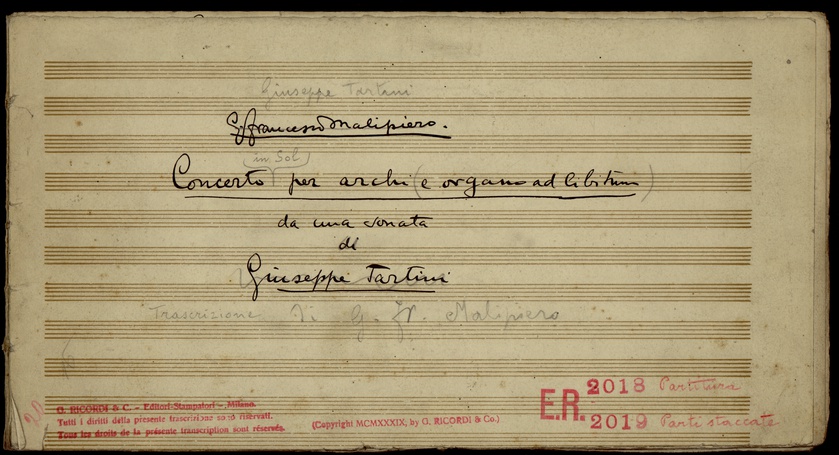 Giuseppe Tartini
G. Francesco Malipiero.
in Sol
Concerto per archi (e organo ad libitum)
da una sonata
di
Giuseppe Tartini
Trascrizione di G. Fr. Malipiero
G. RICORDI & C. - Editori-Stampatori - Milano.
Tutti i diritti della presente trascrizione sono riservati.
Tous les droits de la présente transcription sont réservés.
(Copyright MCMXXXIX, by G. RICORDI & Co.)
E.R. 2018 Partitura
2019 Parti staccate